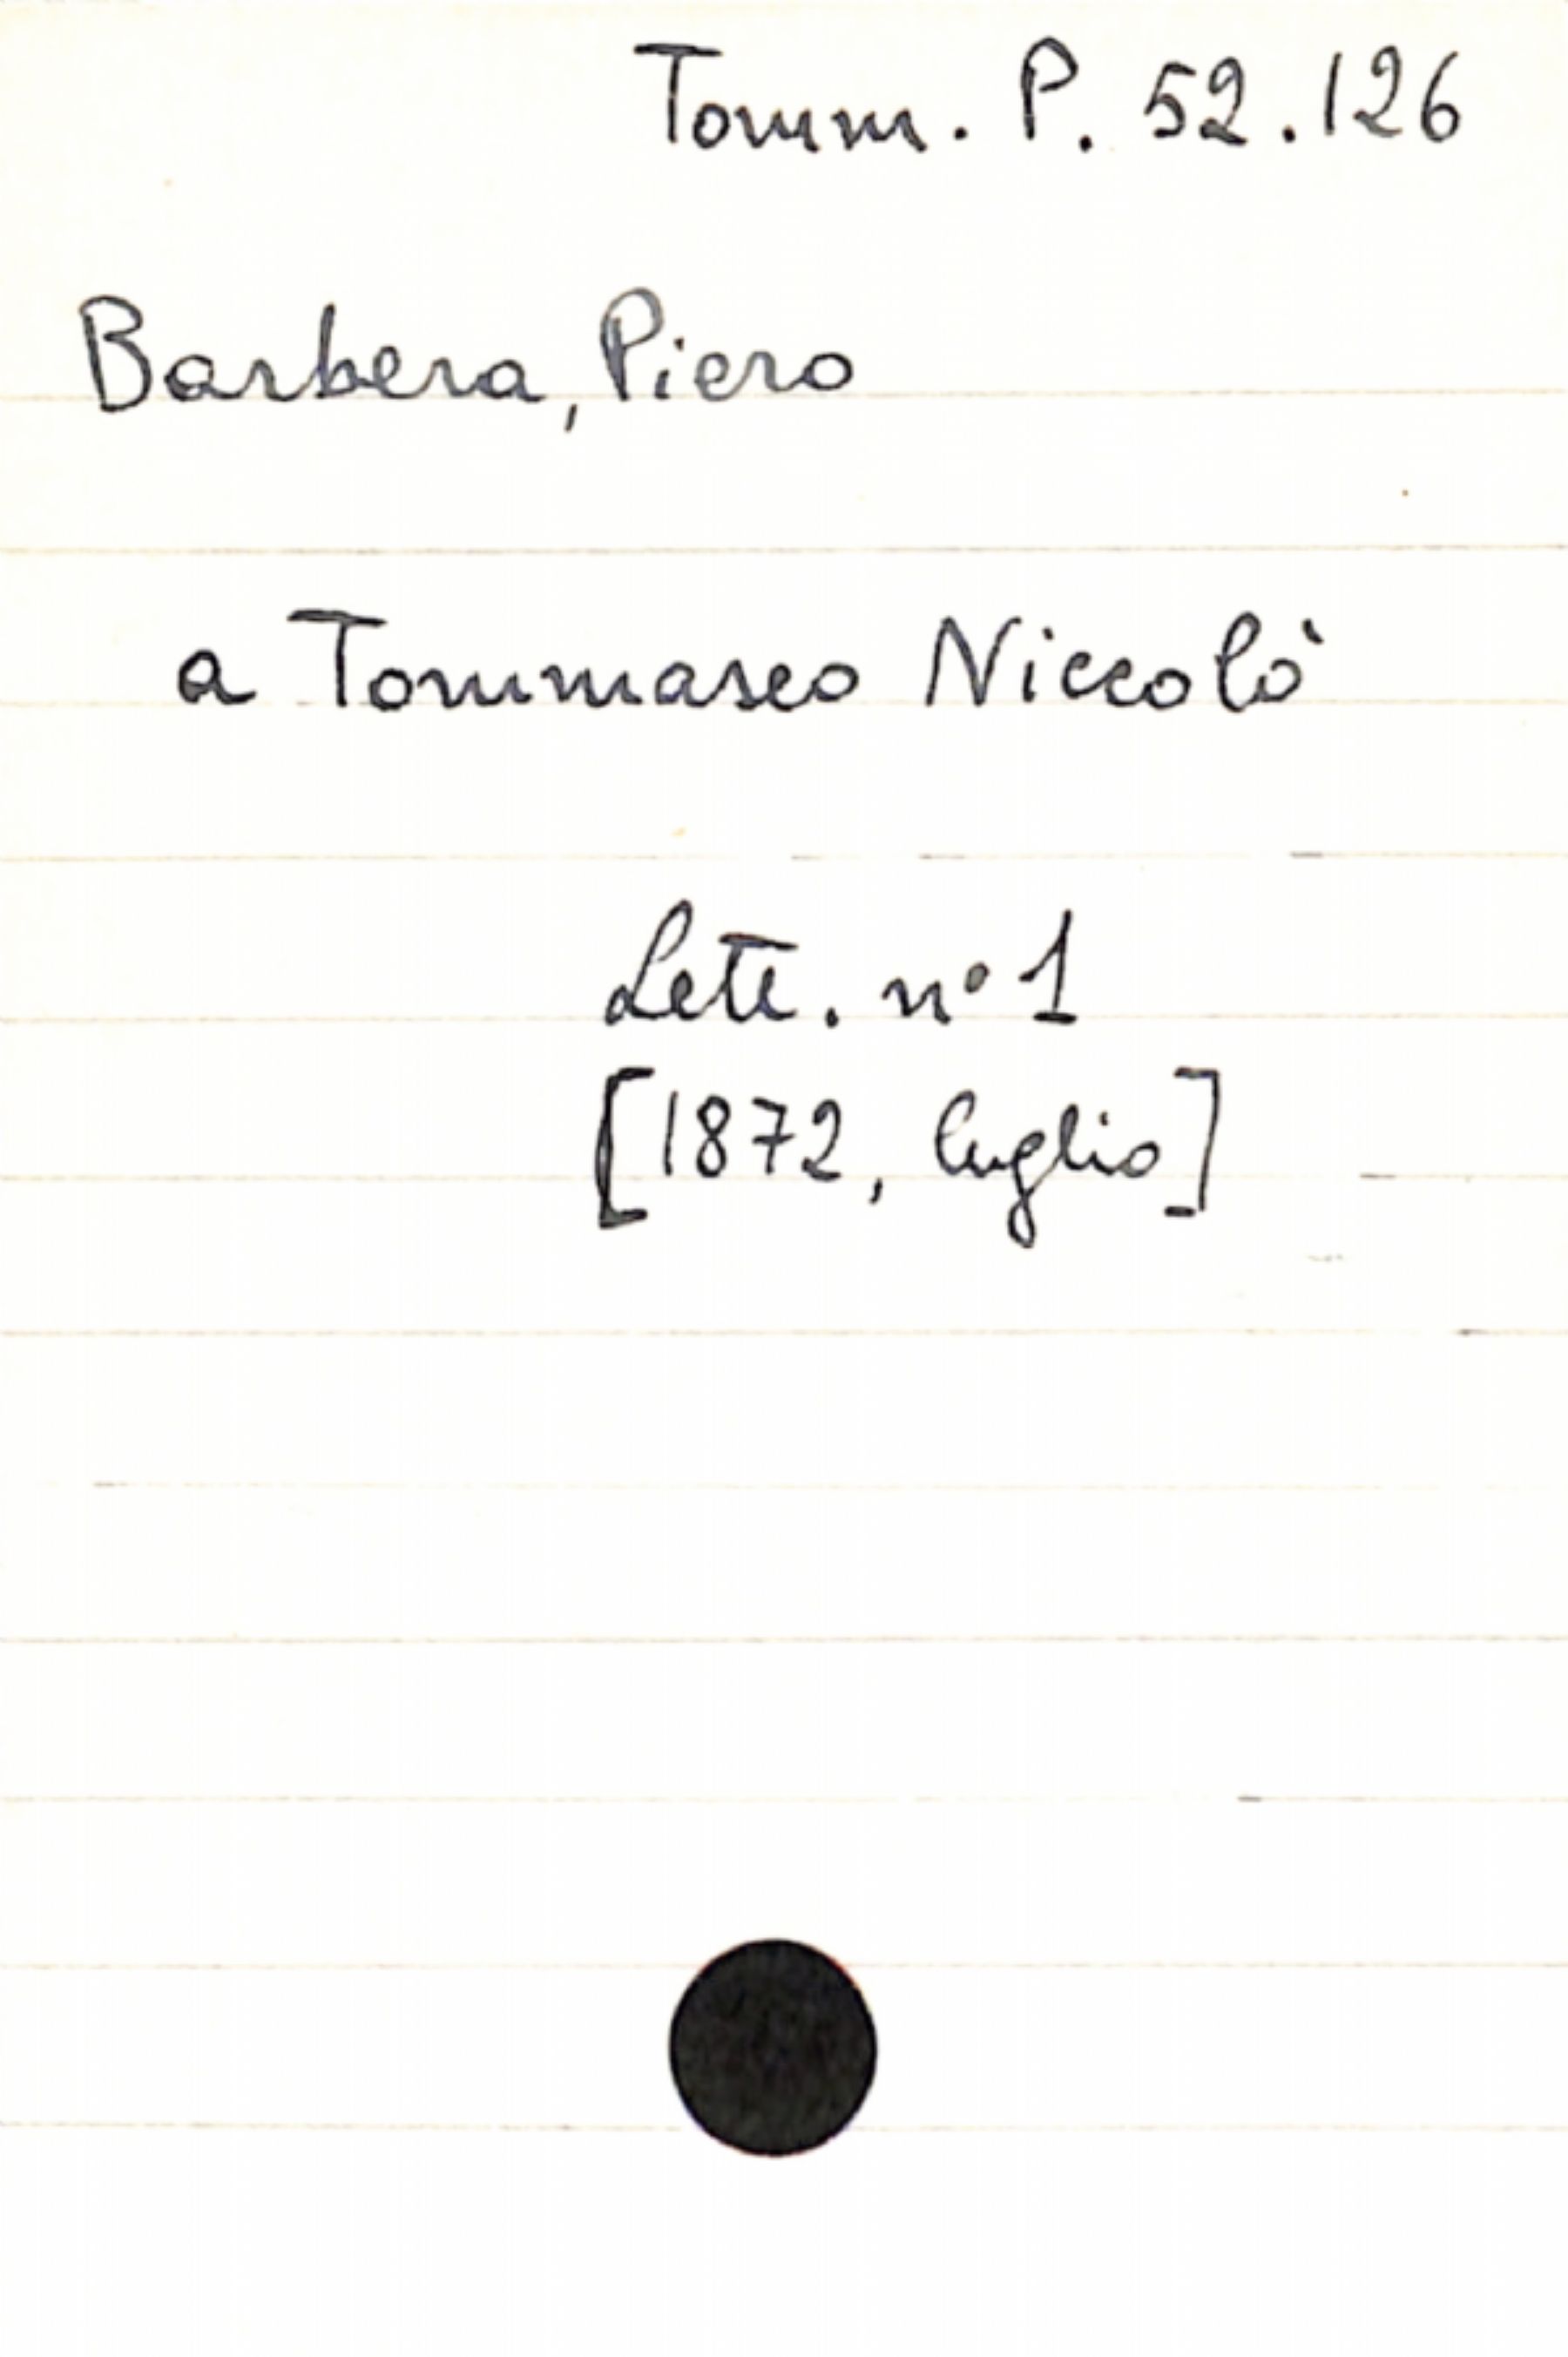 Tomm. P. 52.126
Barbera, Piero
a Tommaseo Niccolò
Lett. n° 1
[1872, luglio]